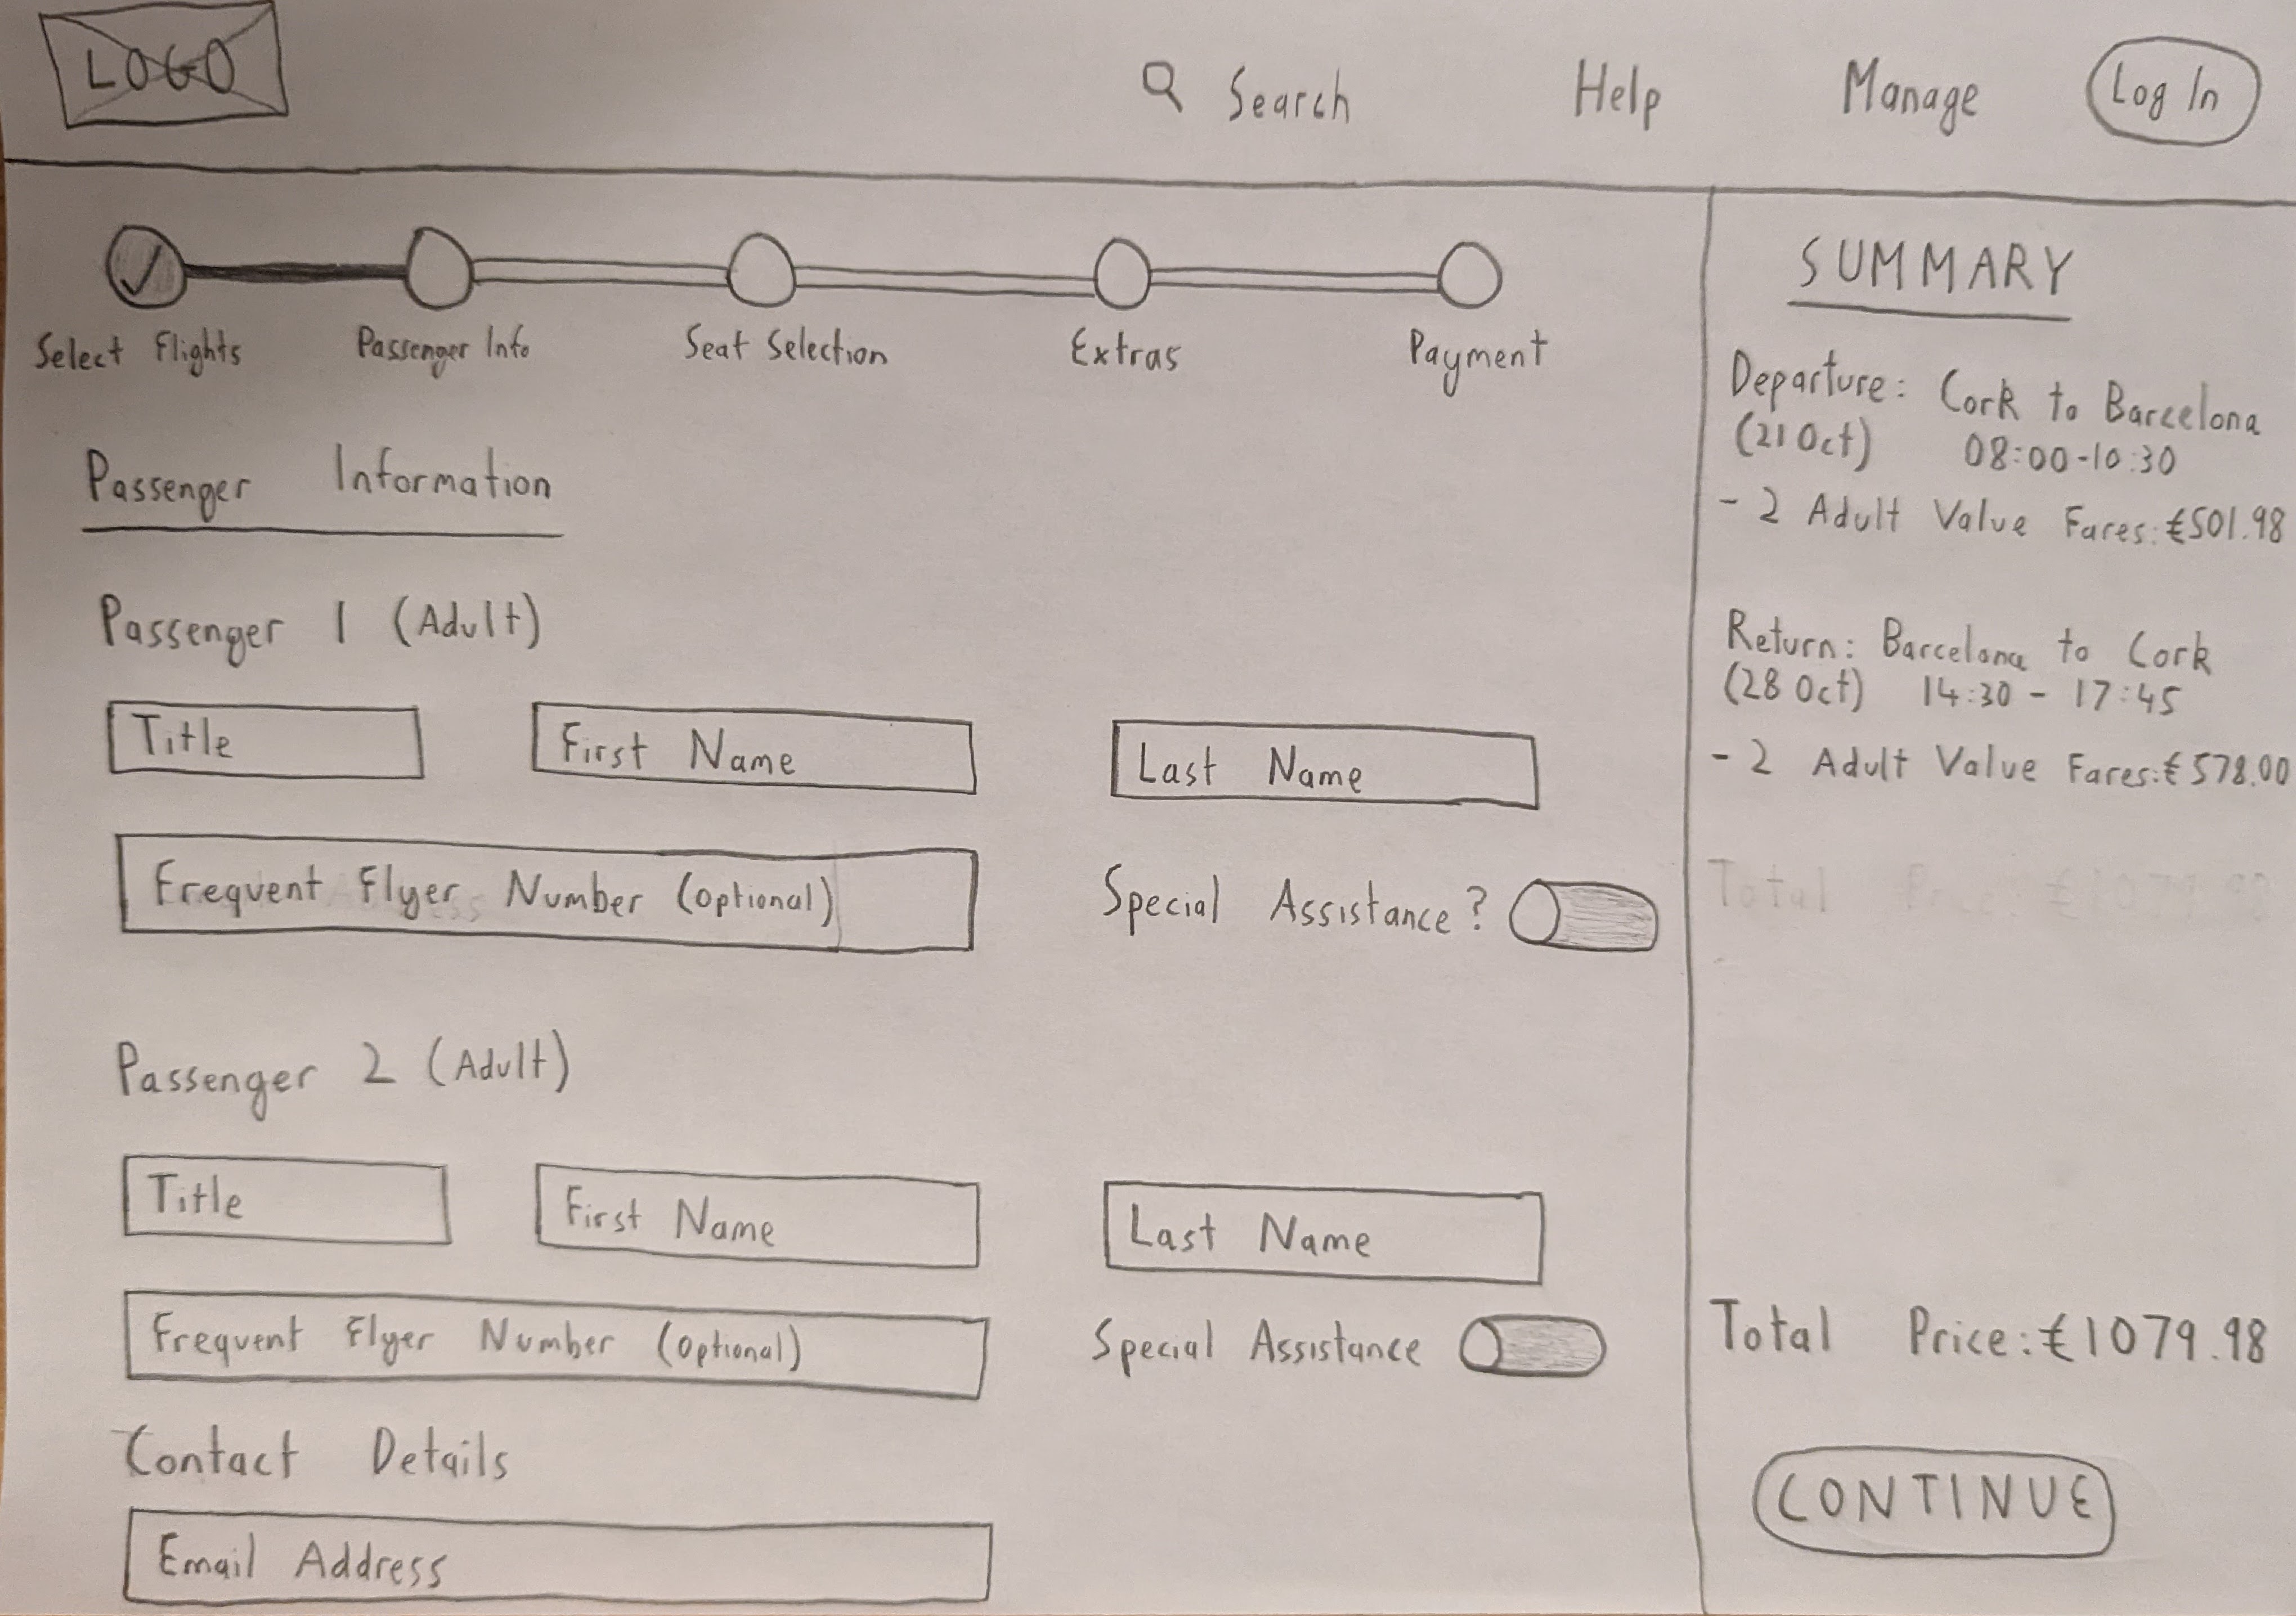 LOGO
Search Help Manage Log In
Select Flights Passenger Info Seat Selection Extras Payment
Passenger Information
Passenger 1 (Adult)
Title First Name Last Name
Frequent Flyer Number (optional) Special Assistance?
Passenger 2 (Adult)
Title First Name Last Name
Frequent Flyer Number (optional) Special Assistance
Contact Details
Email Address
SUMMARY
Departure: Cork to Barcelona
(21 Oct) 08:00-10:30
- 2 Adult Value Fares: €501.98
Return: Barcelona to Cork
(28 Oct) 14:30 - 17:45
- 2 Adult Value Fares: €578.00
Total Price €1079.98
Total Price: €1079.98
CONTINUE